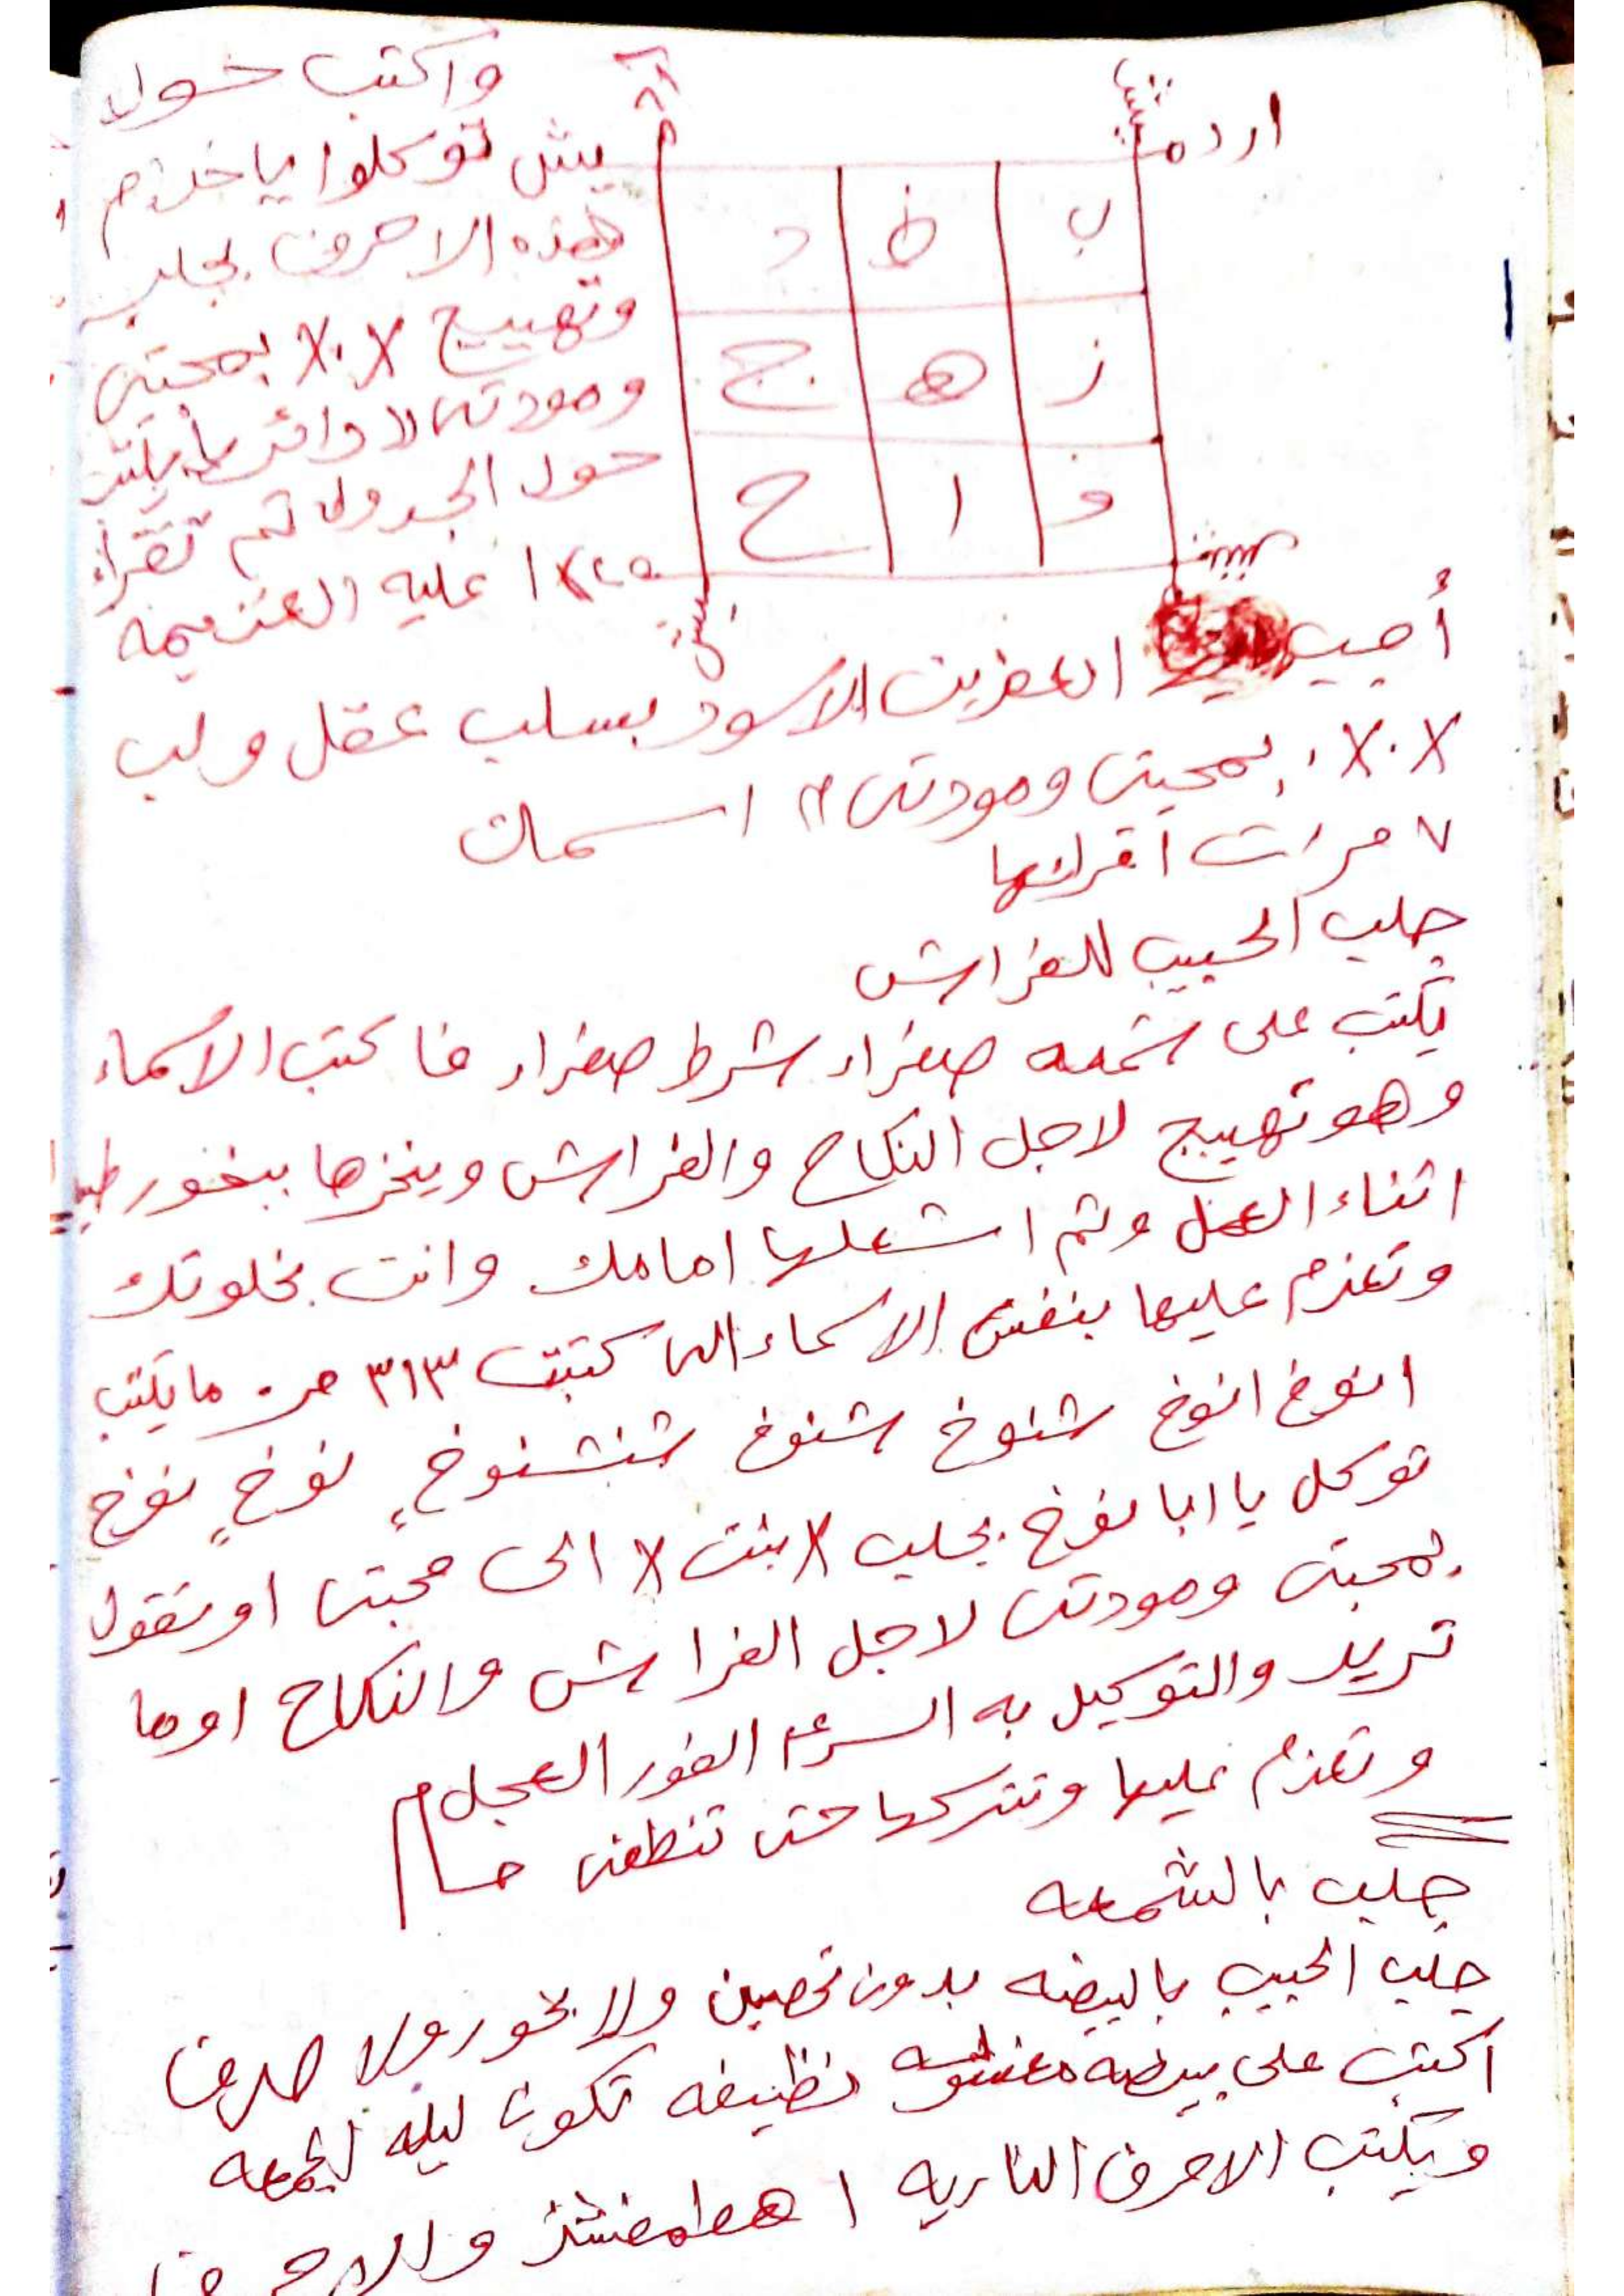 واكتب حول
اردم
يش توكلوا ياخدام
هذه الاحرف بجلب
وتهييج X.X بمحبتي
ومودتي
حول الجدول ثم تقراء
عليه العزيمه
ب ط د
ز ه ج
و ا ح
أجيب العفريت الاسود بسلب عقل ولب
X.X بمحبتي ومودتي
٧ مرات اقرائها
جلب الحبيب للفراش
تكتب على شمعه صفراء شرط صفراء فاكتب الاسماء
وهو تهييج لاجل النكاح والفراش ويبخرها ببخور طيب
اثناء العمل وثم اشعلها امامك وانت بخلوتك
وتعزم عليها بنفس الاسماء التي كتبت ٣١٣ مر. مايكتب
انوخ انوخ شنوخ شنوخ شنشنوخ نوخ نوخ
توكل يا ابا نوخ بجلب X بنت X الى محبتي او تقول
بمحبتي ومودتي لاجل الفراش والنكاح اوما
تريد والتوكيل به السرعه الفور العجل
وتعزم عليها وتتركها حتى تنطفي
جلب بالشمعه
جلب الحبيب بالبيضه بدون تحصين ولا بخور ولا صرف
اكتب على بيضه نظيفه تكون ليلة الجمعه
ويكتب الاحرف الناريه اهطمفشذ والاحرف